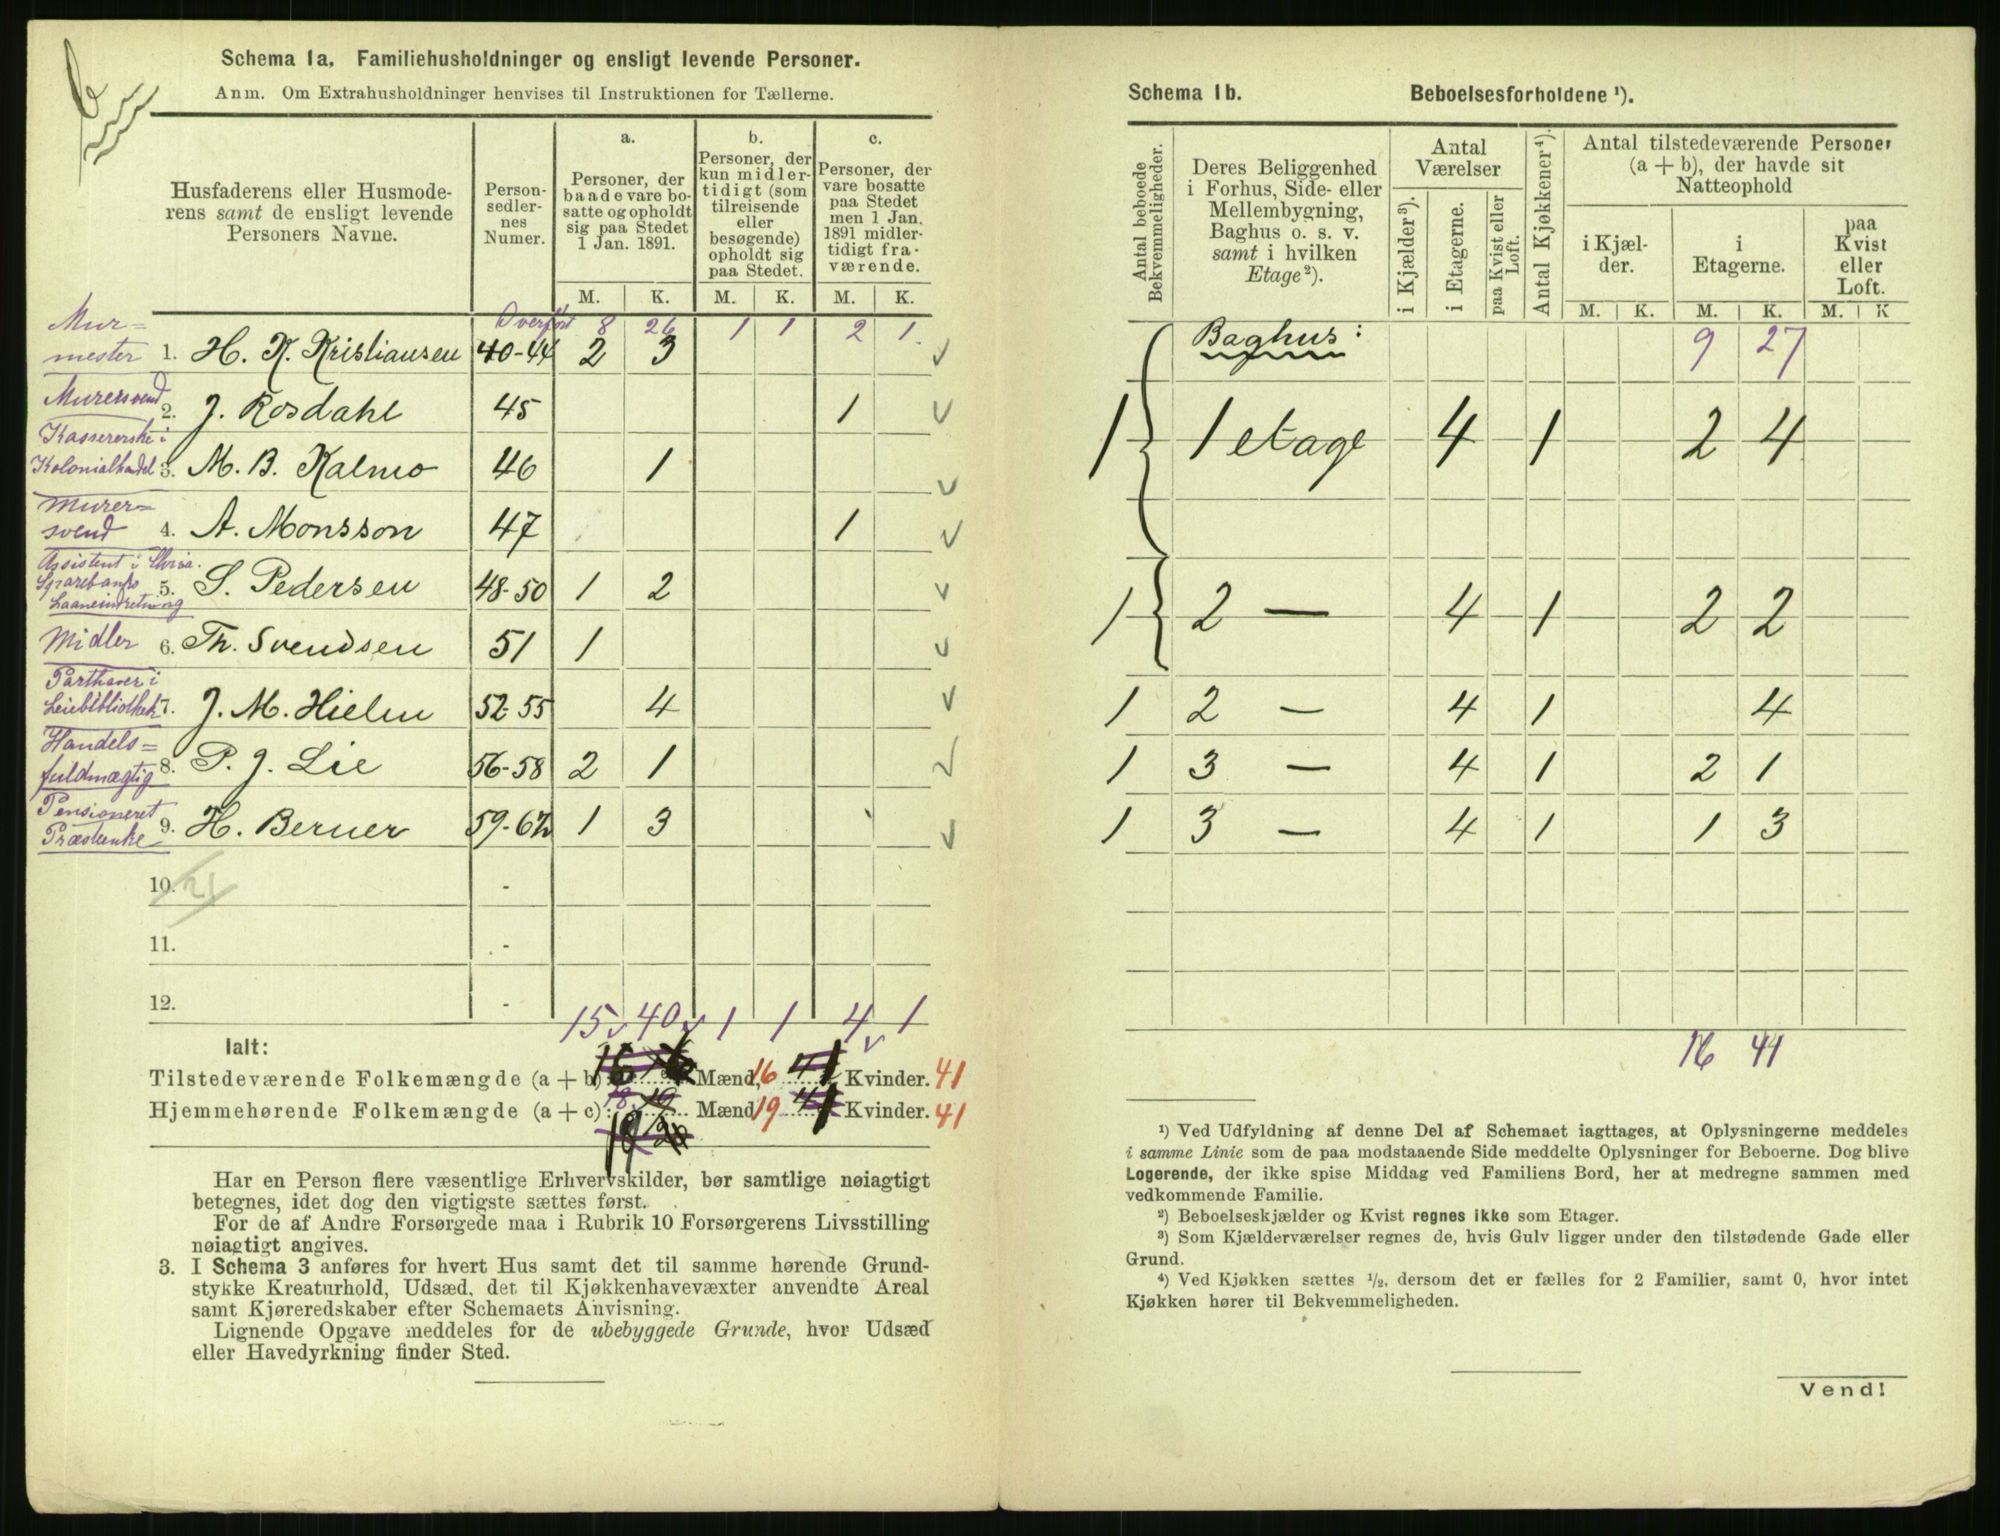 Schema 1a. Familiehusholdninger og ensligt levende Personer.
Anm. Om Extrahusholdninger henvises til Instruktionen for Tællerne.
Husfaderens eller Husmoderens samt de ensligt levende Personers Navne.
Personsedlernes Numer.
a. Personer, der baade vare bosatte og opholdt sig paa Stedet 1 Jan. 1891.
b. Personer, der kun midlertidigt (som tilreisende eller besøgende) opholdt sig paa Stedet.
c. Personer, der vare bosatte paa Stedet men 1 Jan. 1891 midlertidigt fraværende.
M. K. M. K. M. K.
Overført 8 26 1 1 2 1.
Murmester 1. H. K. Kristiansen 40-44 2 3
Murersvend 2. J. Rosdahl 45 1
Kassererske i Kolonialhandel 3. M. B. Kalmo 46 1
Murersvend 4. A. Monsson 47 1
Assistent i Chria. Sparebanks Laaneindretning 5. S. Pedersen 48-50 1 2
Midler 6. Th. Svendsen 51 1
Parthaver i Leiebibliothek 7. J. M. Hielm 52-55 4
Handelsfuldmægtig 8. P. J. Lie 56-58 2 1
Pensioneret Præsteenke 9. H. Berner 59-62 1 3
10. 21 -
11. -
12. -
15 40 1 1 4 1
Ialt:
Tilstedeværende Folkemængde (a + b) Mænd, 16 Kvinder. 41
Hjemmehørende Folkemængde (a + c): 18 19 Mænd 19 Kvinder. 41
Har en Person flere væsentlige Erhvervskilder, bør samtlige nøiagtigt
betegnes, idet dog den vigtigste sættes først.
For de af Andre Forsørgede maa i Rubrik 10 Forsørgerens Livsstilling
nøiagtigt angives.
3. I Schema 3 anføres for hvert Hus samt det til samme hørende Grund-
stykke Kreaturhold, Udsæd, det til Kjøkkenhavevæxter anvendte Areal
samt Kjøreredskaber efter Schemaets Anvisning.
Lignende Opgave meddeles for de ubebyggede Grunde, hvor Udsæd
eller Havedyrkning finder Sted.
Schema 1b. Beboelsesforholdene ¹).
Antal beboede Bekvemmeligheder.
Deres Beliggenhed i Forhus, Side- eller Mellembygning, Baghus o. s. v. samt i hvilken Etage²).
Antal Værelser
i Kjælder³).
i Etagerne.
paa Kvist eller Loft.
Antal Kjøkkener⁴).
Antal tilstedeværende Personer (a + b), der havde sit Natteophold
i Kjælder.
i Etagerne.
paa Kvist eller Loft.
M. K. M. K. M. K
Baghus: 9 27
1 1 etage 4 1 2 4
1 2 — 4 1 2 2
1 2 — 4 1 4
1 3 — 4 1 2 1
1 3 — 4 1 1 3
16 41
¹) Ved Udfyldning af denne Del af Schemaet iagttages, at Oplysningerne meddeles
i samme Linie som de paa modstaaende Side meddelte Oplysninger for Beboerne. Dog blive
Logerende, der ikke spise Middag ved Familiens Bord, her at medregne sammen med
vedkommende Familie.
²) Beboelseskjælder og Kvist regnes ikke som Etager.
³) Som Kjælderværelser regnes de, hvis Gulv ligger under den tilstødende Gade eller
Grund.
⁴) Ved Kjøkken sættes ½, dersom det er fælles for 2 Familier, samt 0, hvor intet
Kjøkken hører til Bekvemmeligheden.
Vend!